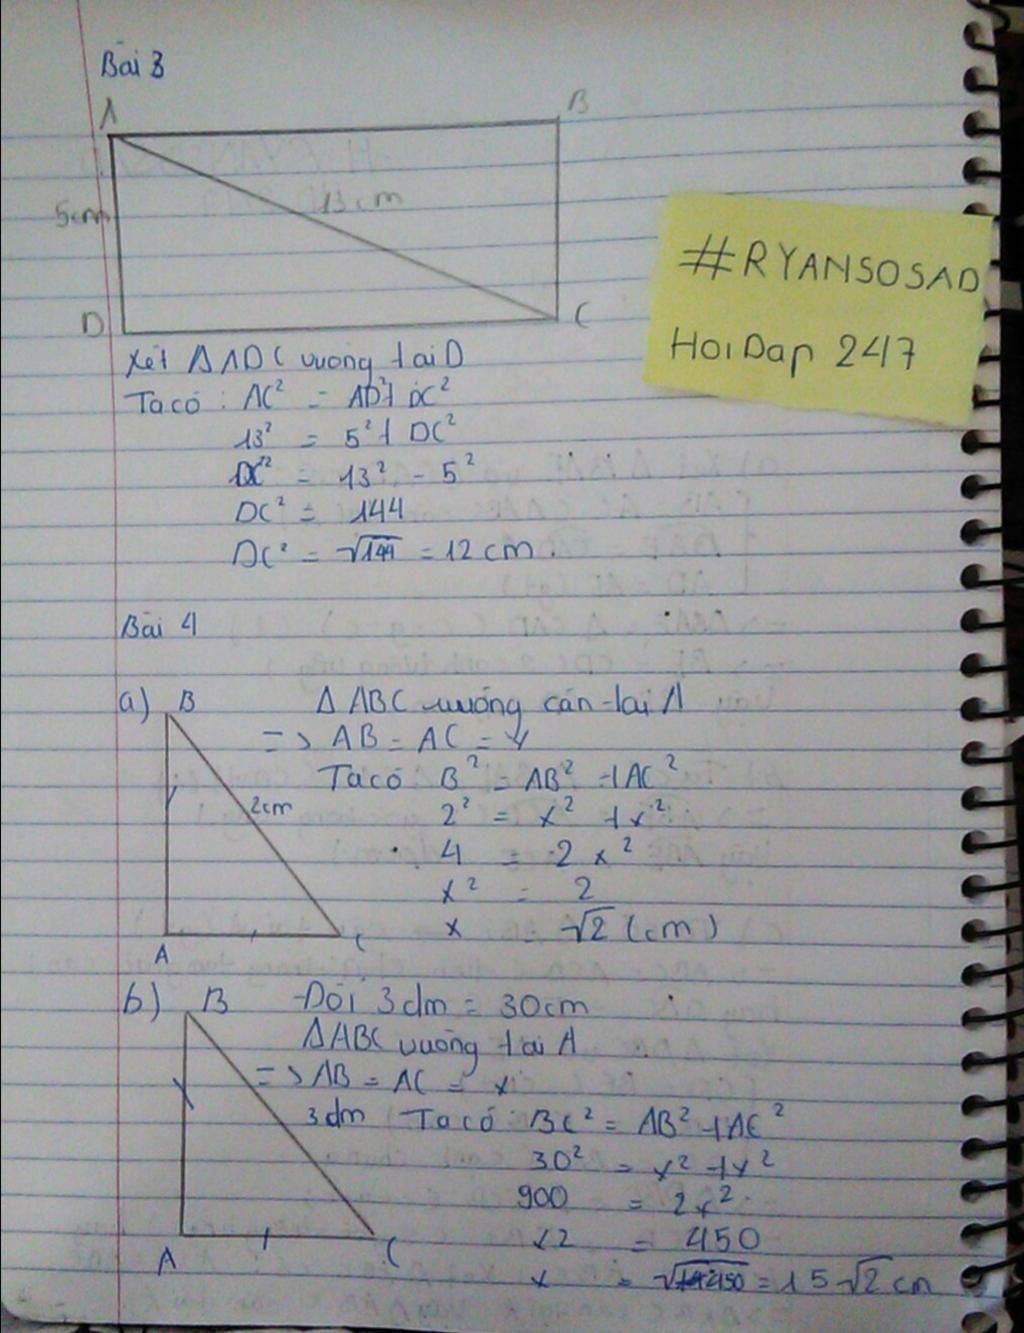 Bài 3
A B
5cm 13cm
D C
#RYANSOSAD
HoiDap 247
Xét ΔADC vuông tại D
Ta có : AC² = AD² + DC²
13² = 5² + DC²
DC² = 13² - 5²
DC² = 144
DC² = √144 = 12cm.
Bài 4
a) B ΔABC vuông cân tại A
=> AB = AC = x
Ta có B² = AB² + AC²
2cm 2² = x² + x²
4 = 2x²
x² = 2
x = √2 (cm)
A C
b) B Đổi 3dm = 30cm
ΔABC vuông tại A
=> AB = AC = x
3dm Ta có : BC² = AB² + AC²
30² = x² + x²
900 = 2x²
x2 = 450
A C x = √450 = 15√2 cm